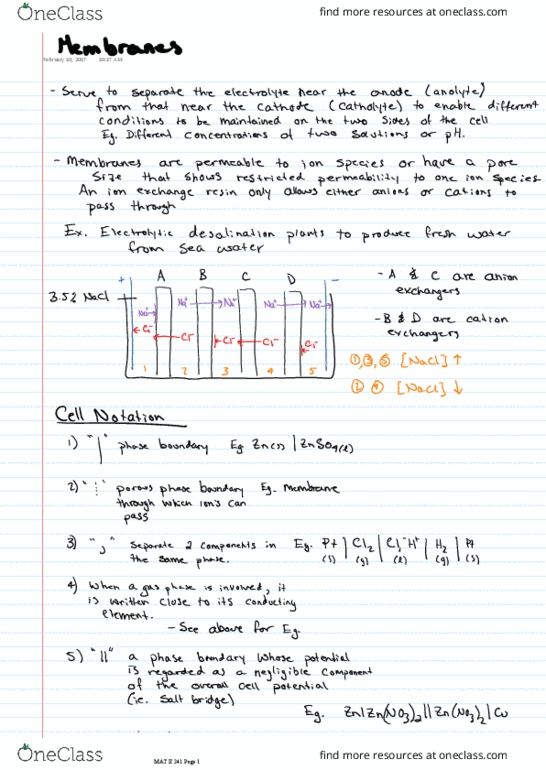 OneClass
find more resources at oneclass.com
Membranes
February 10, 2007 10:27 AM
- Serve to separate the electrolyte near the anode (anolyte)
from that near the cathode (catholyte) to enable different
conditions to be maintained on the two sides of the cell
Eg. Different concentrations of two solutions or pH.
- Membranes are permeable to ion species or have a pore
size that shows restricted permeability to one ion species.
An ion exchange resin only allows either anions or cations to
pass through
Ex. Electrolytic desalination plants to produce fresh water
from sea water
+ A B C D -
3.52 NaCl
Na+ Na+ Na+ Na+ Na+
Cl- Cl- Cl- Cl- Cl-
1 2 3 4 5
- A & C are anion
exchangers
- B & D are cation
exchangers
①,③,⑤ [NaCl] ↑
② ④ [NaCl] ↓
Cell Notation
1) "|" phase boundary Eg Zn(s) | ZnSO4(l)
2) "⋮" porous phase boundary Eg. Membrane
through which ion's can
pass
3) "," separate 2 components in Eg. Pt | Cl2 | Cl- H+ | H2 | Pt
the same phase. (s) (g) (l) (g) (s)
4) When a gas phase is involved, it
is written close to its conducting
element.
- See above for Eg.
5) "||" a phase boundary whose potential
is regarded as a negligible component
of the overall cell potential
(ie. Salt bridge)
Eg. Zn|Zn(NO3)2||Zn(NO3)2|Cu
MAT E 341 Page 1
OneClass
find more resources at oneclass.com